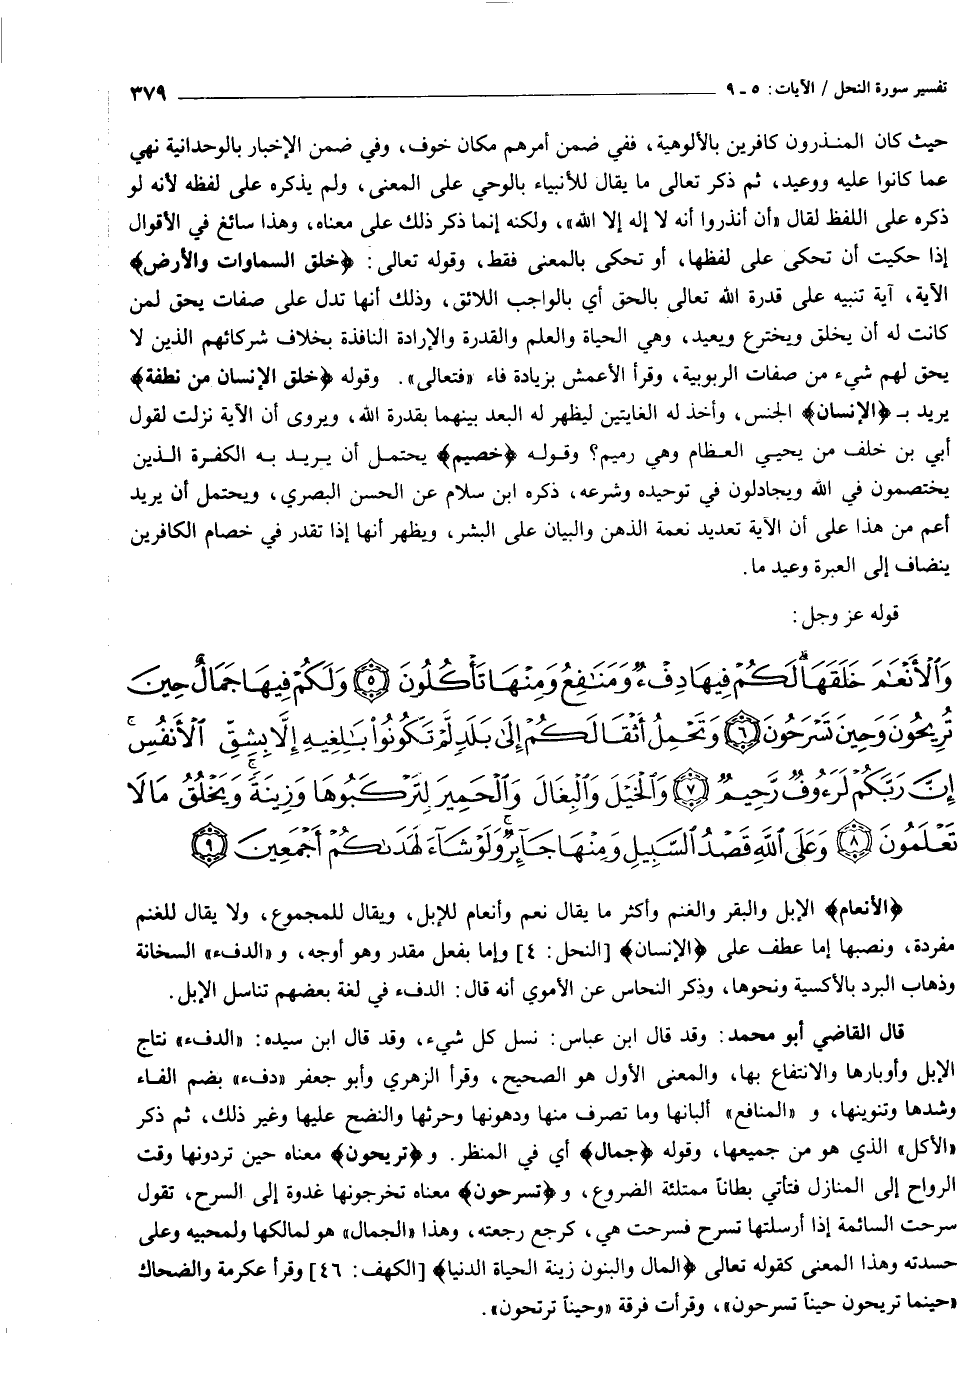 تفسير سورة النحل / الآيات: ٥ ـ ٩ ٣٧٩
حيث كان المنذرون كافرين بالألوهية، ففي ضمن أمرهم مكان خوف، وفي ضمن الإخبار بالوحدانية نهي
عما كانوا عليه ووعيد، ثم ذكر تعالى ما يقال للأنبياء بالوحي على المعنى، ولم يذكره على لفظه لأنه لو
ذكره على اللفظ لقال «أن أنذروا أنه لا إله إلا الله»، ولكنه إنما ذكر ذلك على معناه، وهذا سائغ في الأقوال
إذا حكيت أن تحكى على لفظها، أو تحكى بالمعنى فقط، وقوله تعالى: ﴿خلق السماوات والأرض﴾
الآية، آية تنبيه على قدرة الله تعالى بالحق أي بالواجب اللائق، وذلك أنها تدل على صفات يحق لمن
كانت له أن يخلق ويخترع ويعيد، وهي الحياة والعلم والقدرة والإرادة النافذة بخلاف شركائهم الذين لا
يحق لهم شيء من صفات الربوبية، وقرأ الأعمش بزيادة فاء «فتعالى». وقوله ﴿خلق الإنسان من نطفة﴾
يريد بـ ﴿الإنسان﴾ الجنس، وأخذ له الغايتين ليظهر له البعد بينهما بقدرة الله، ويروى أن الآية نزلت لقول
أبي بن خلف من يحيي العظام وهي رميم؟ وقوله ﴿خصيم﴾ يحتمل أن يريد به الكفرة الذين
يختصمون في الله ويجادلون في توحيده وشرعه، ذكره ابن سلام عن الحسن البصري، ويحتمل أن يريد
أعم من هذا على أن الآية تعديد نعمة الذهن والبيان على البشر، ويظهر أنها إذا تقدر في خصام الكافرين
ينضاف إلى العبرة وعيد ما.
قوله عز وجل:
وَالْأَنْعَامَ خَلَقَهَا ۗ لَكُمْ فِيهَا دِفْءٌ وَمَنَافِعُ وَمِنْهَا تَأْكُلُونَ ٥ وَلَكُمْ فِيهَا جَمَالٌ حِينَ
تُرِيحُونَ وَحِينَ تَسْرَحُونَ ٦ وَتَحْمِلُ أَثْقَالَكُمْ إِلَىٰ بَلَدٍ لَّمْ تَكُونُوا بَالِغِيهِ إِلَّا بِشِقِّ الْأَنْفُسِ ۚ
إِنَّ رَبَّكُمْ لَرَءُوفٌ رَّحِيمٌ ٧ وَالْخَيْلَ وَالْبِغَالَ وَالْحَمِيرَ لِتَرْكَبُوهَا وَزِينَةً ۚ وَيَخْلُقُ مَا لَا
تَعْلَمُونَ ٨ وَعَلَى اللَّهِ قَصْدُ السَّبِيلِ وَمِنْهَا جَائِرٌ ۚ وَلَوْ شَاءَ لَهَدَىٰكُمْ أَجْمَعِينَ ٩
﴿الأنعام﴾ الإبل والبقر والغنم وأكثر ما يقال نعم وأنعام للإبل، ويقال للمجموع، ولا يقال للغنم
مفردة، ونصبها إما عطف على ﴿الإنسان﴾ [النحل: ٤] وإما بفعل مقدر وهو أوجه، و «الدفء» السخانة
وذهاب البرد بالأكسية ونحوها، وذكر النحاس عن الأموي أنه قال: الدفء في لغة بعضهم تناسل الإبل.
قال القاضي أبو محمد: وقد قال ابن عباس: نسل كل شيء، وقد قال ابن سيده: «الدفء» نتاج
الإبل وأوبارها والانتفاع بها، والمعنى الأول هو الصحيح، وقرأ الزهري وأبو جعفر «دفء» بضم الفاء
وشدها وتنوينها، و «المنافع» ألبانها وما تصرف منها ودهونها وحرثها والنضح عليها وغير ذلك، ثم ذكر
«الأكل» الذي هو من جميعها، وقوله ﴿جمال﴾ أي في المنظر. و﴿تريحون﴾ معناه حين تردونها وقت
الرواح إلى المنازل فتأتي بطاناً ممتلئة الضروع، و﴿تسرحون﴾ معناه تخرجونها غدوة إلى السرح، تقول
سرحت السائمة إذا أرسلتها تسرح فسرحت هي، كرجع رجعته، وهذا «الجمال» هو لمالكها ولمحبيه وعلى
حسدته وهذا المعنى كقوله تعالى ﴿المال والبنون زينة الحياة الدنيا﴾ [الكهف: ٤٦] وقرأ عكرمة والضحاك
«حينما تريحون حيناً تسرحون»، وقرأت فرقة «وحيناً ترتحون».